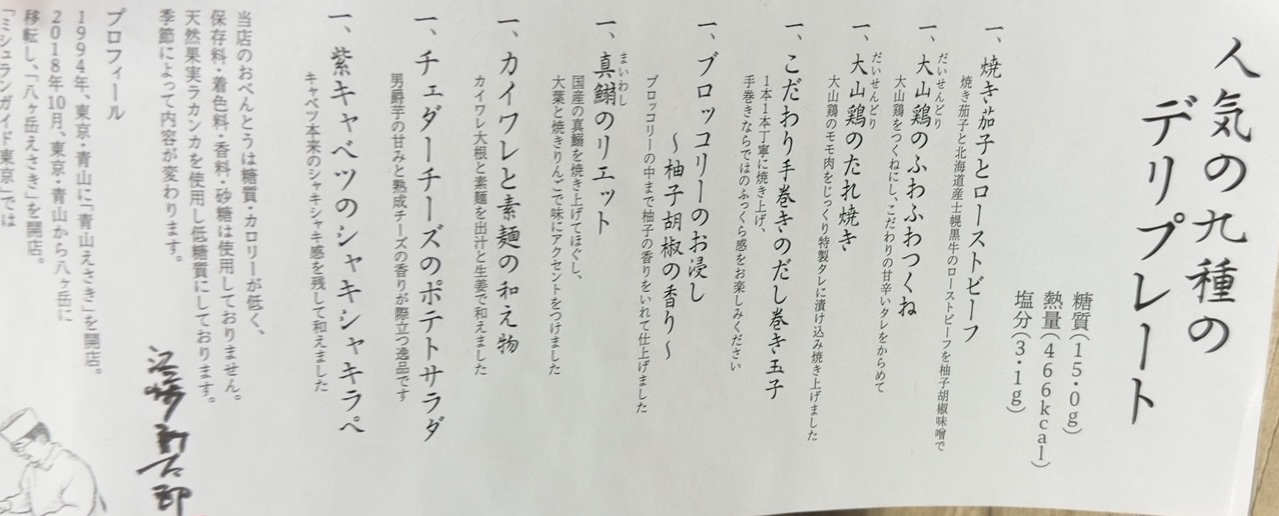 人気の九種の
デリプレート
糖質(15・0g)
熱量(466kcal)
塩分(3・1g)
一、焼き茄子とローストビーフ
焼き茄子と北海道産士幌黒牛のローストビーフを柚子胡椒味噌で
一、大山鶏のふわふわつくね
だいせんどり
大山鶏をつくねにし、こだわりの甘辛いタレをからめて
一、大山鶏のたれ焼き
だいせんどり
大山鶏のモモ肉をじっくり特製タレに漬け込み焼き上げました
一、こだわり手巻きのだし巻き玉子
1本1本丁寧に焼き上げ、
手巻きならではのふっくら感をお楽しみください
一、ブロッコリーのお浸し
〜柚子胡椒の香り〜
ブロッコリーの中まで柚子の香りをいれて仕上げました
一、真鰯のリエット
まいわし
国産の真鰯を焼き上げてほぐし、
大葉と焼きりんごで味にアクセントをつけました
一、カイワレと素麺の和え物
カイワレ大根と素麺を出汁と生姜で和えました
一、チェダーチーズのポテトサラダ
男爵芋の甘みと熟成チーズの香りが際立つ逸品です
一、紫キャベツのシャキシャキラペ
キャベツ本来のシャキシャキ感を残して和えました
当店のおべんとうは糖質・カロリーが低く、
保存料・着色料・香料・砂糖は使用しておりません。
天然果実ラカンカを使用し低糖質にしております。
季節によって内容が変わります。
プロフィール
1994年、東京・青山に「青山えさき」を開店。
2018年10月、東京・青山から八ヶ岳に
移転し、「八ヶ岳えさき」を開店。
「ミシュランガイド東京」では